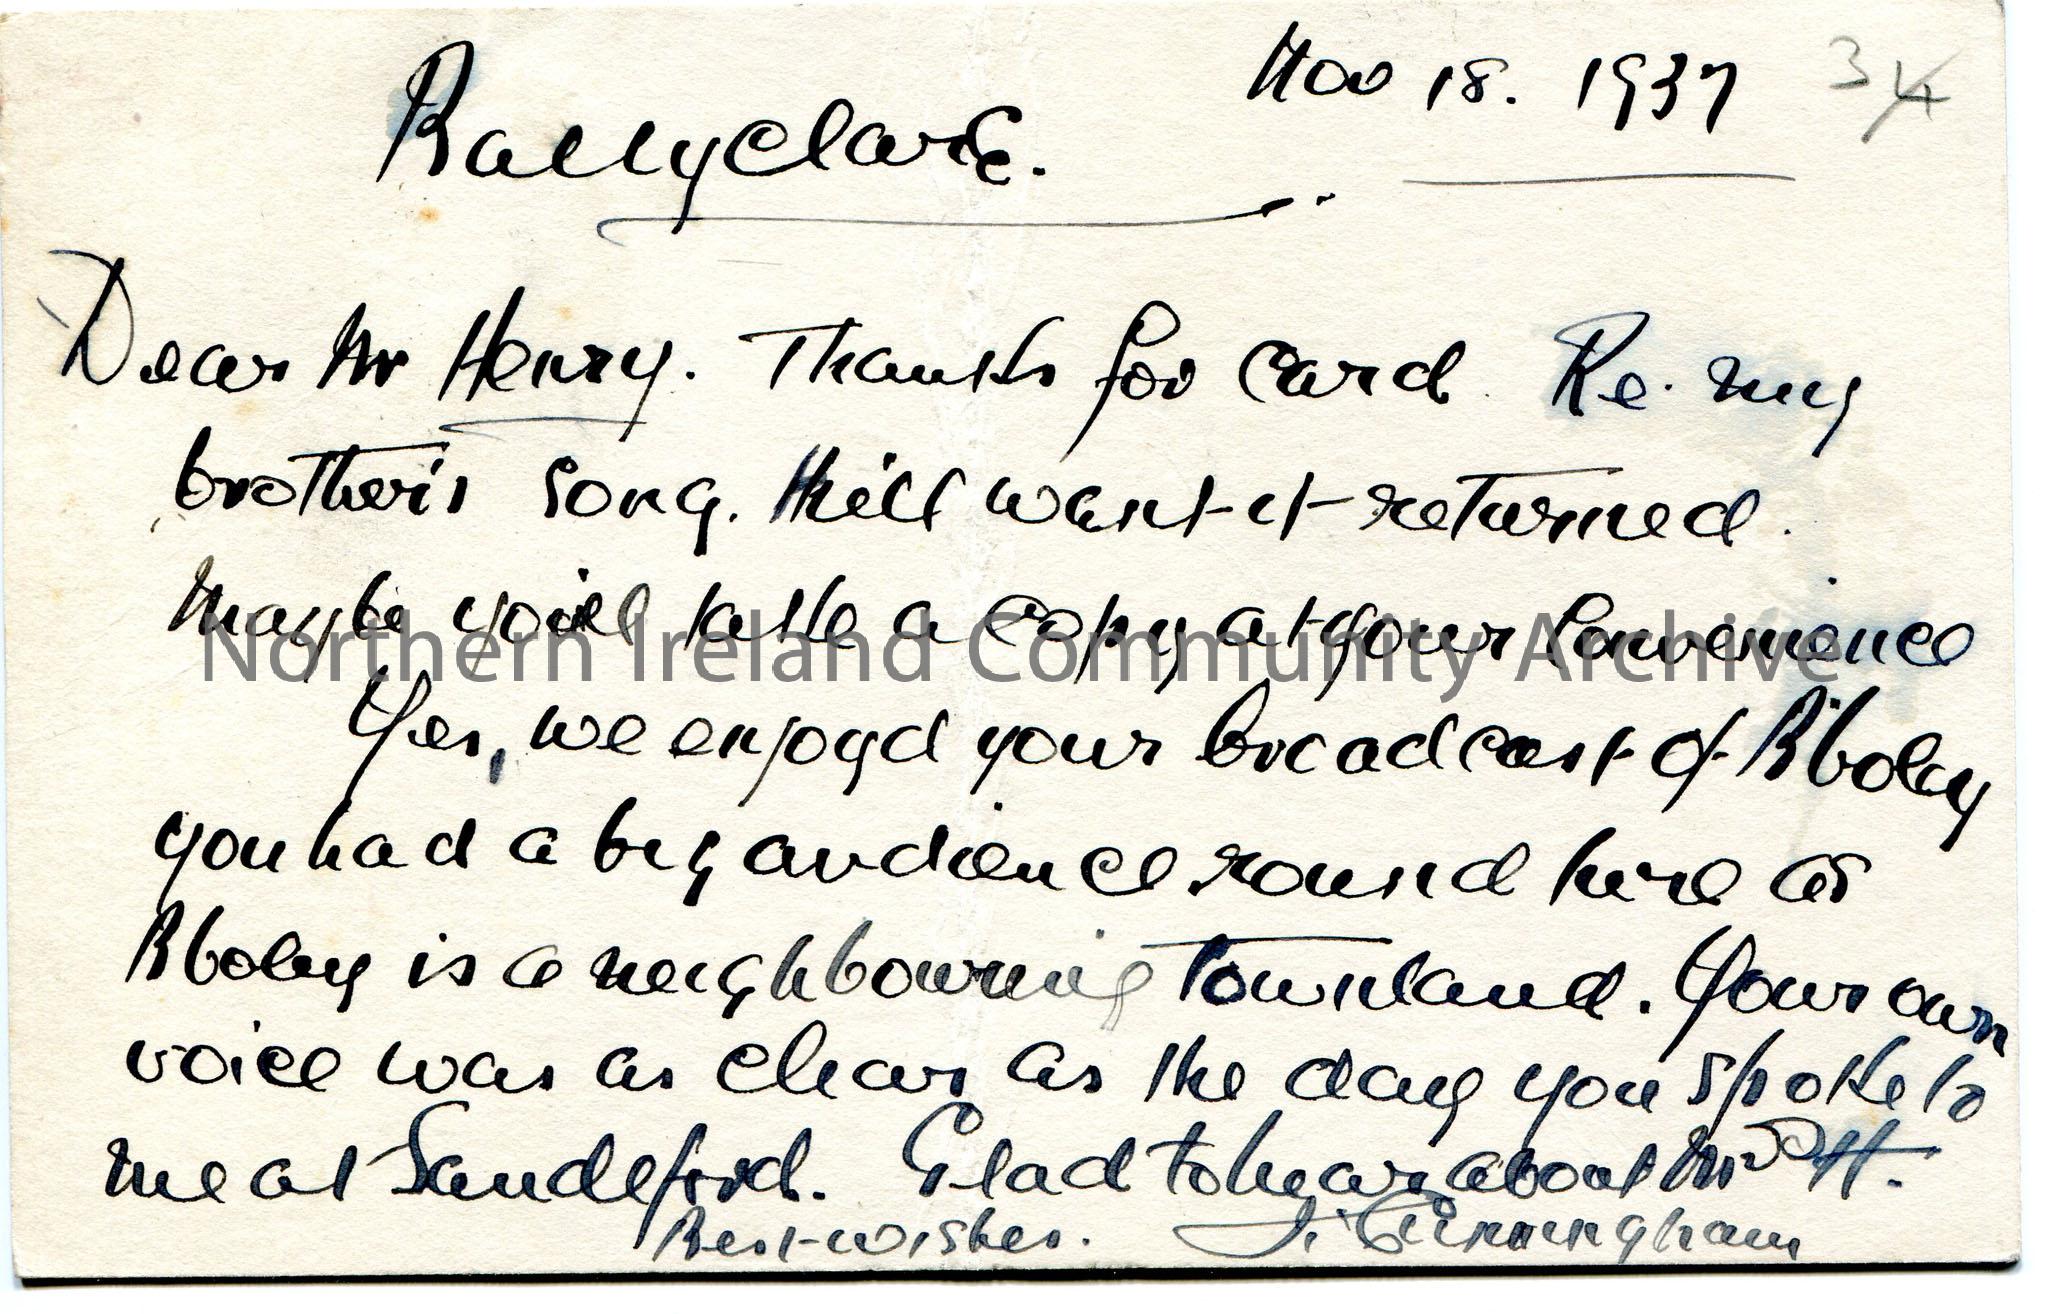 Nov 18. 1937 34
Ballyclare.
Dear Mr Henry. Thanks for card. Re. my
brother's song. He'll want it returned.
Maybe you'll take a copy at your convenience
Yes, we enjoyd your broadcast of B'boley
you had a big audience round here as
B'boley is a neighbouring townland. Your own
voice was as clear as the day you spoke to
me at Sandelford. Glad to hear about Mrs H.
Best wishes. J. Cunningham
Northern Ireland Community Archive